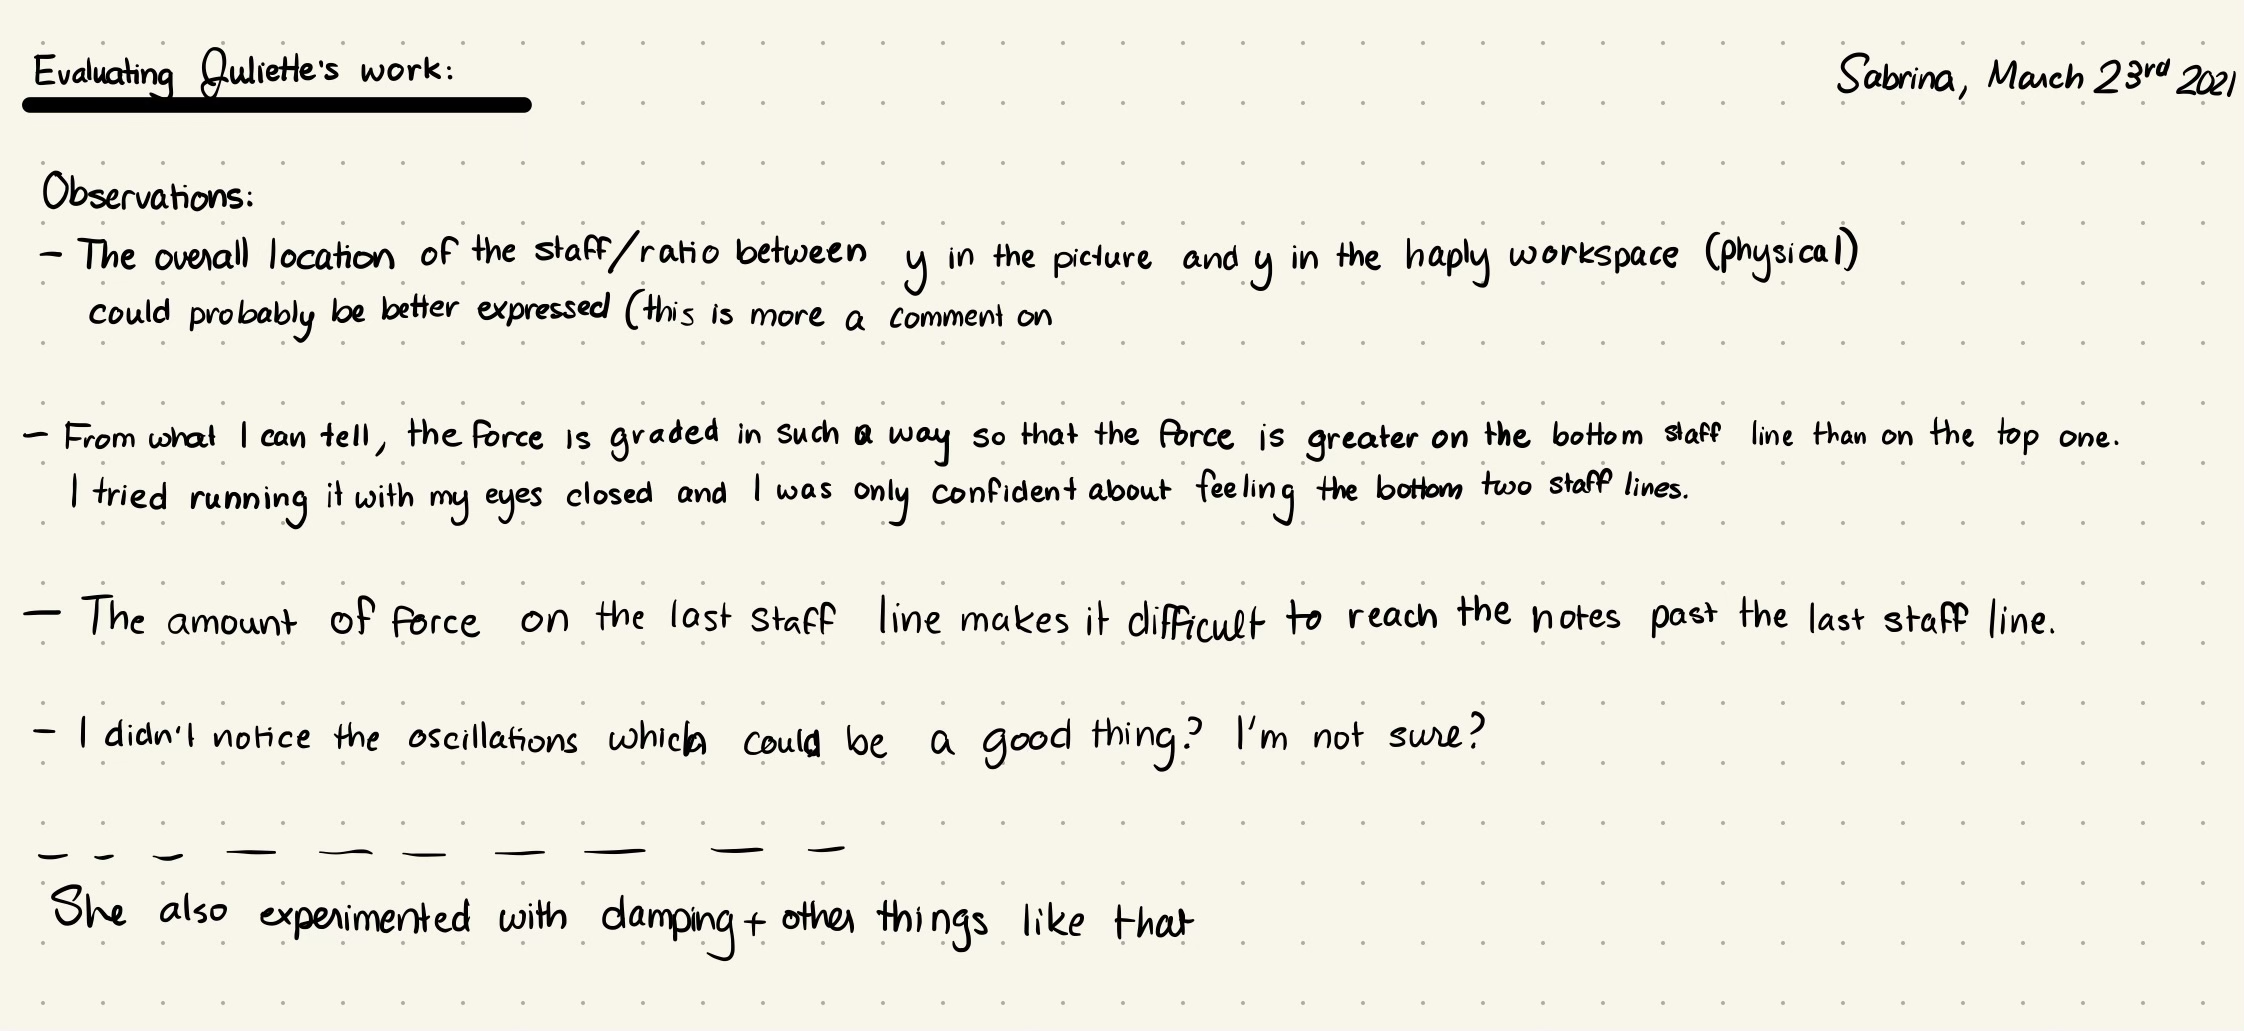 Evaluating Juliette's work:
Sabrina, March 23rd 2021
Observations:
- The overall location of the staff/ratio between y in the picture and y in the haply workspace (physical)
could probably be better expressed (this is more a comment on
- From what I can tell, the force is graded in such a way so that the force is greater on the bottom staff line than on the top one.
I tried running it with my eyes closed and I was only confident about feeling the bottom two staff lines.
- The amount of force on the last staff line makes it difficult to reach the notes past the last staff line.
- I didn't notice the oscillations which could be a good thing? I'm not sure?
She also experimented with damping + other things like that